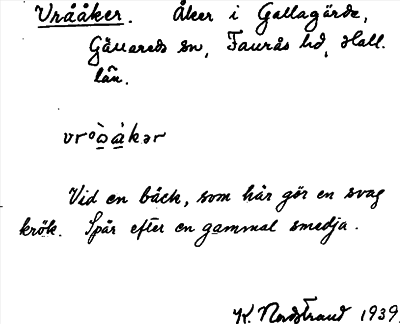 Vrååker. Åker i Gallagärde,
Gällareds sn, Faurås hd, Hall.
län.
vròåkər
Vid en bäck, som här gör en svag
krök. Spår efter en gammal smedja.
K. Nordstrand 1939.